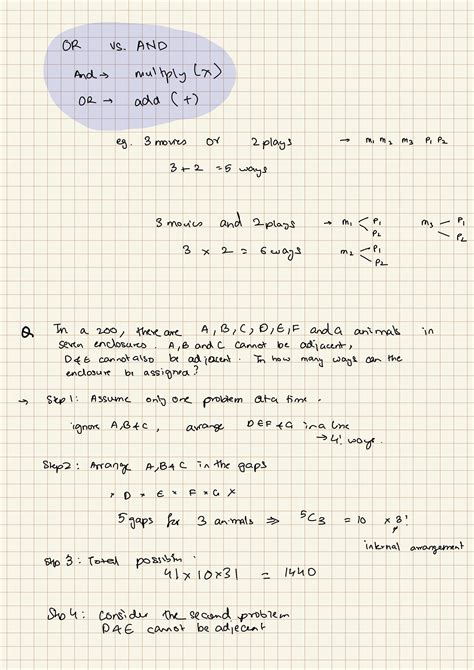 OR vs. AND
And → multiply (x)
OR → add (+)
eg. 3 movies or 2 plays → m₁ m₂ m₃ P₁ P₂
3 + 2 = 5 ways
3 movies and 2 plays → m₁ < P₁ P₂ m₃ < P₁ P₂
3 x 2 = 6 ways m₂ < P₁ P₂
Q In a zoo, there are A, B, C, D, E, F and G animals in
seven enclosures. A, B and C cannot be adjacent,
D & E cannot also be adjacent. In how many ways can the
enclosure be assigned?
→ Step 1: Assume only one problem at a time.
ignore A, B & C, arrange D E F & G in a line
→ 4! ways.
Step 2: Arrange A, B & C in the gaps
x D x E x F x G x
5 gaps for 3 animals ⇒ ⁵C₃ = 10 x 3!
internal arrangement
Step 3: Total possibln.
4! x 10 x 3! = 1440
Step 4: Consider the second problem
D & E cannot be adjecent